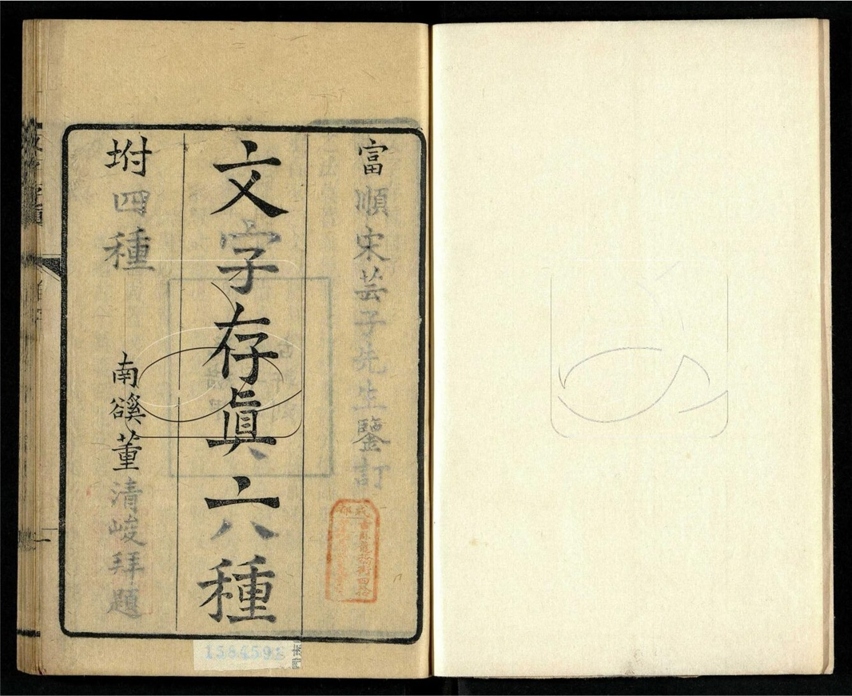 富順宋芸子先生鑒訂
文字存眞六種
坿四種
南谿董清峻拜題
1584592